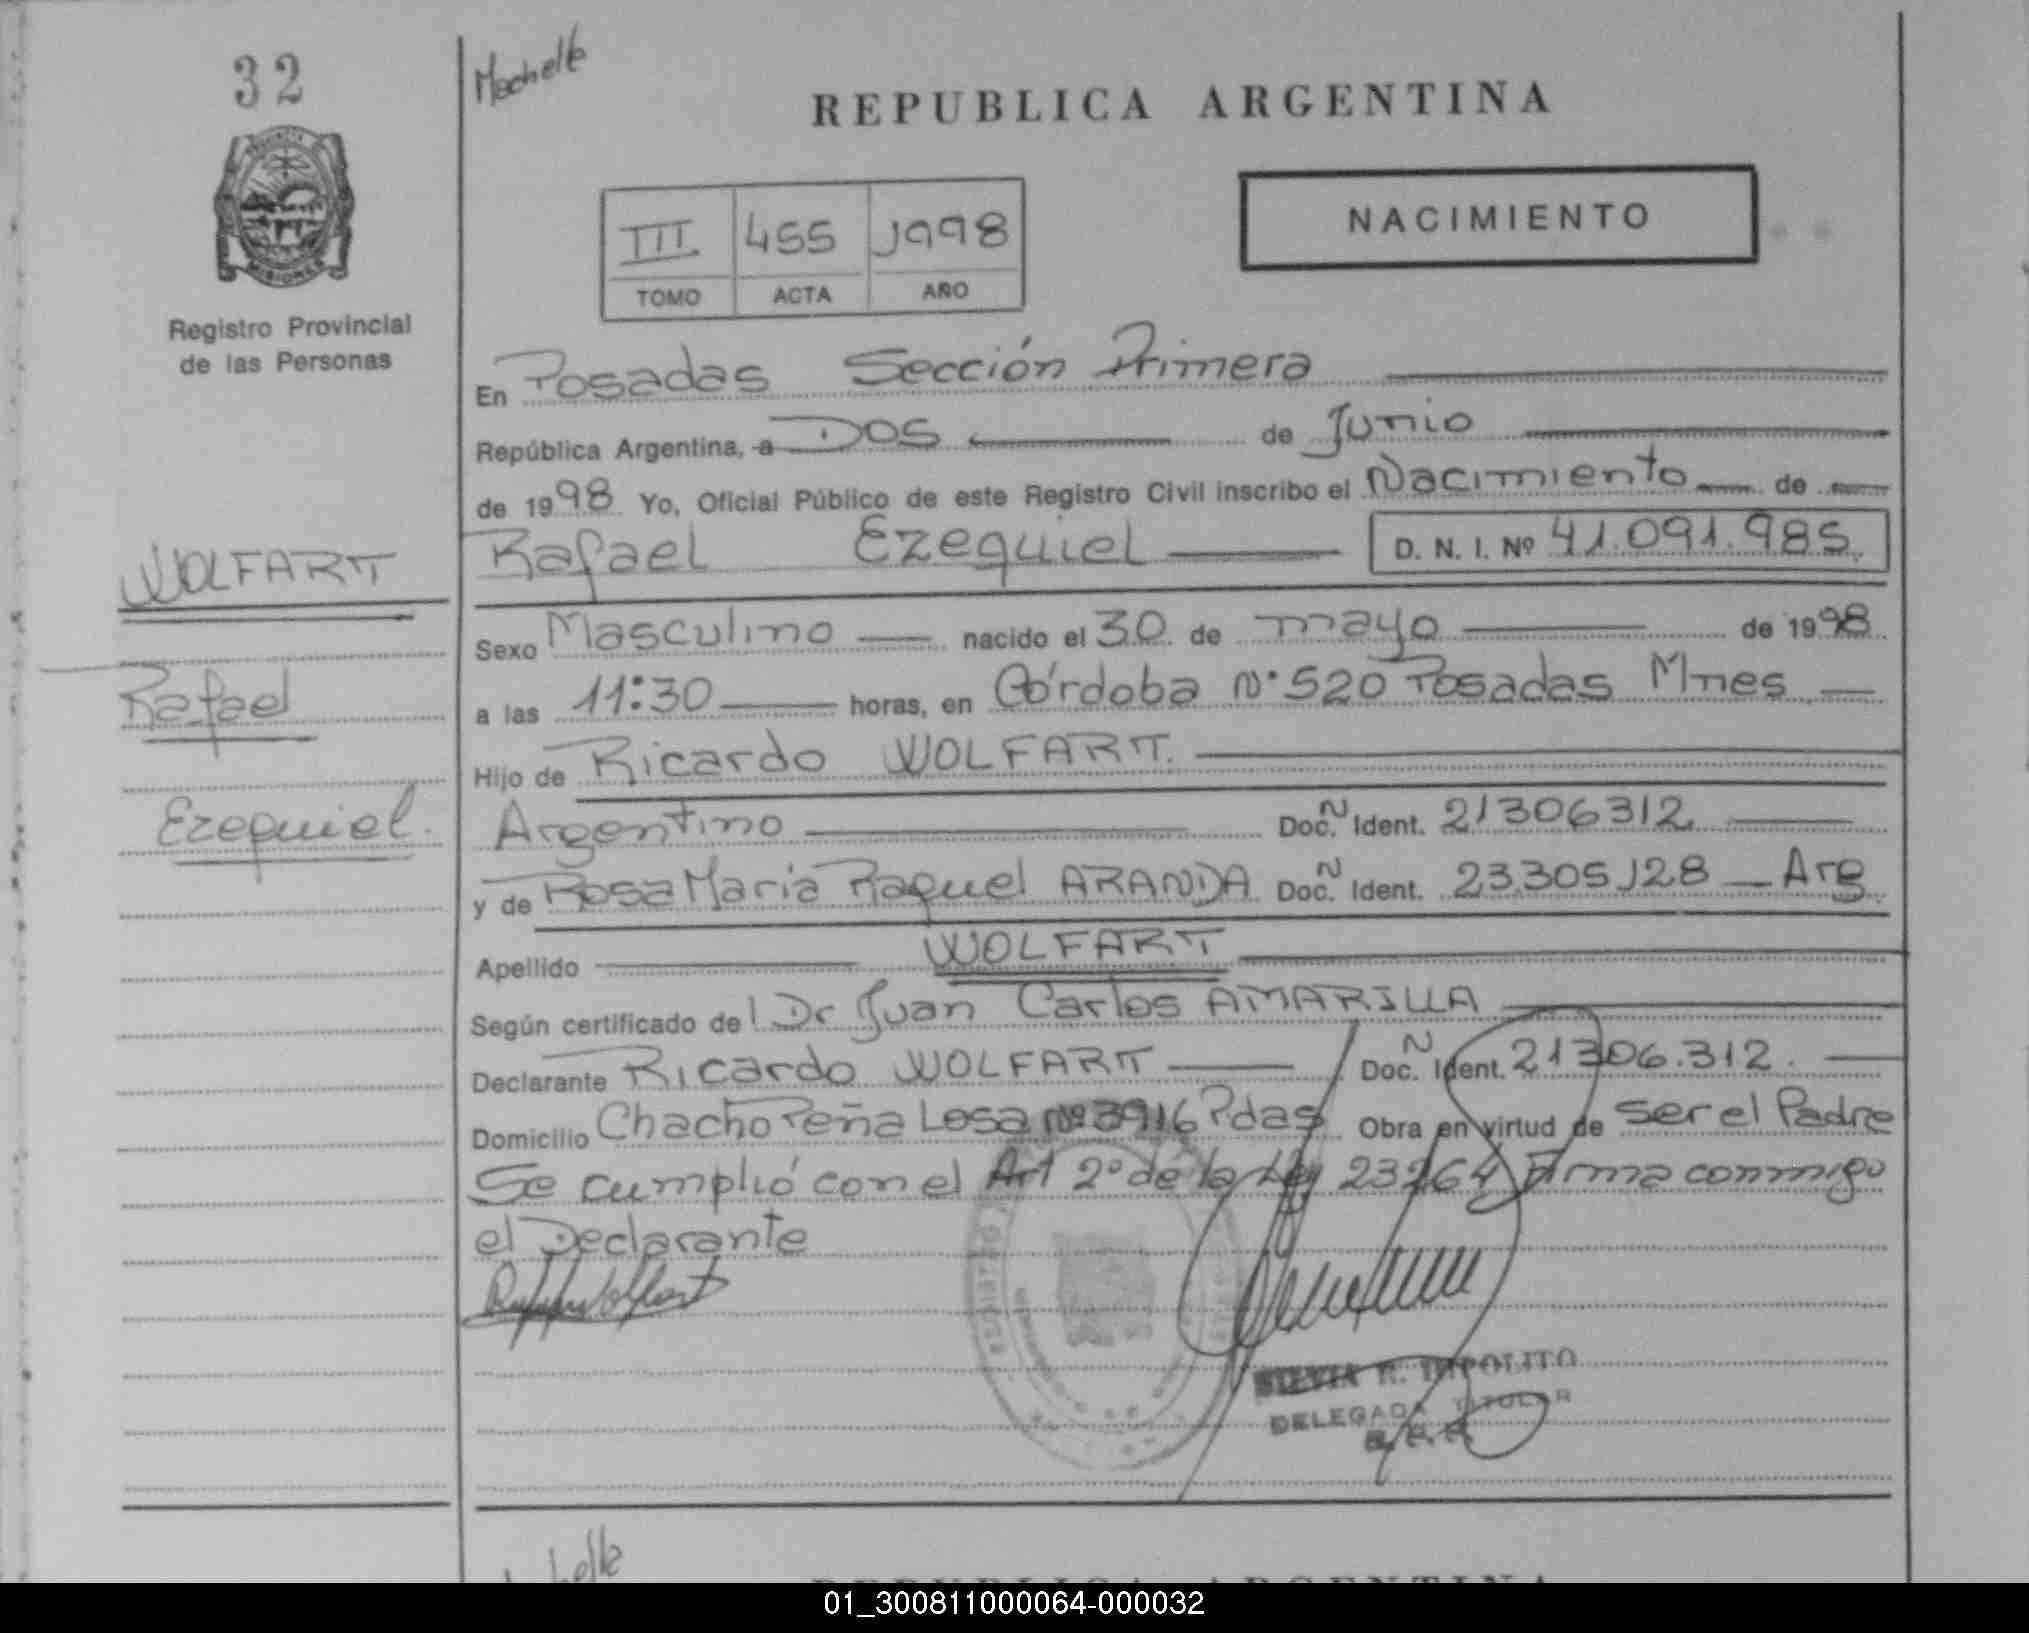 32
REPUBLICA ARGENTINA
NACIMIENTO
III 455 1998
TOMO ACTA AÑO
MISIONES
Registro Provincial
de las Personas
En Posadas Sección Primera
República Argentina, a Dos de Junio
de 1998 Yo, Oficial Público de este Registro Civil inscribo el Nacimiento de
Rafael Ezequiel D. N. I. Nº 41.091.985.
WOLFART
Rafael
Ezequiel.
Sexo Masculino nacido el 30 de mayo de 1998
a las 11:30 horas, en Córdoba Nº 520 Posadas Mnes
Hijo de Ricardo WOLFART.
Argentino Doc. N Ident. 21306312
y de Rosa Maria Raquel ARANDA Doc. N Ident. 23.305.128 Arg.
Apellido WOLFART
Según certificado del Dr Juan Carlos AMARILLA
Declarante Ricardo WOLFART Doc. N Ident. 21306.312.
Domicilio Chacho Peña Losa Nº 3916 Pdas Obra en virtud de ser el Padre
Se cumplió con el Art 2º de la Ley 23264 Firma conmigo
el Declarante
SILVIA R. IMPOLITO
DELEGADA TITULAR
01_300811000064-000032